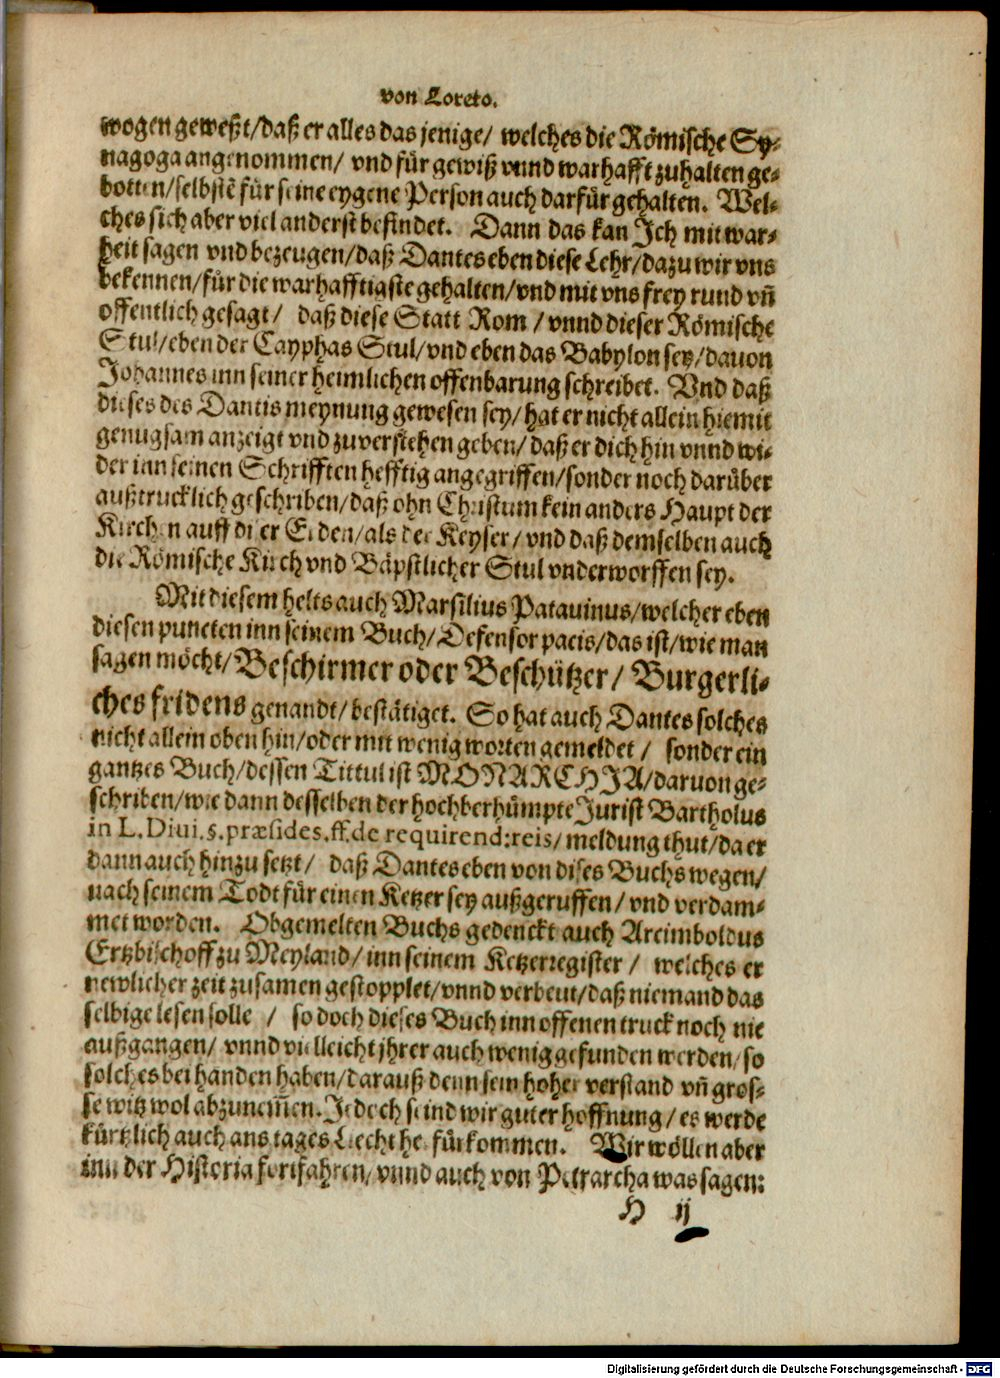 von Loreto.
wogen geweßt/daß er alles das jenige/ welches die Römische Sy-
nagoga angenommen/ vnd für gewiß vnnd warhafft zuhalten ge-
botten/selbstē für seine eygene Person auch darfür gehalten. Wel-
ches sich aber viel anderst befindet. Dann das kan Ich mit war-
heit sagen vnd bezeugen/daß Dantes eben diese Lehr/dazu wir vns
bekennen/für die warhafftigste gehalten/vnd mit vns frey rund vn̄
offentlich gesagt/ daß diese Statt Rom/vnnd dieser Römische
Stul/eben der Cayphas Stul/vnd eben das Babylon sey/dauon
Johannes inn seiner heimlichen offenbarung schreibet. Vnd daß
dieses des Dantis meynung gewesen sey/hat er nicht allein hiemit
genugsam anzeigt vnd zuverstehen geben/daß er dich hin vnnd wi-
der inn seinen Schrifften hefftig angegriffen/sonder noch darüber
außtrucklich geschriben/daß ohn Christum kein anders Haupt der
Kirchen auff diser Erden/als der Keyser/vnd daß demselben auch
die Römische Kirch vnd Bäpstlicher Stul vnderworffen sey.
Mit diesem helts auch Marsilius Patauinus/welcher eben
diesen puncten inn seinem Buch/Defensor pacis/das ist/wie man
sagen möcht/Beschirmer oder Beschützer/Burgerli-
ches fridens genandt/bestätiget. So hat auch Dantes solches
nicht allein oben hin/oder mit wenig worten gemeldet/ sonder ein
gantzes Buch/dessen Tittul ist MONARCHIA/daruon ge-
schriben/wie dann desselben der hochberhümpte Jurist Bartholus
in L. Diui. §. præsides. ff. de requirend: reis/meldung thut/da er
dann auch hinzu setzt/ daß Dantes eben von dises Buchs wegen/
nach seinem Todt für einen Ketzer sey außgeruffen/vnd verdam-
met worden. Obgemelten Buchs gedenckt auch Arcimboldus
Ertzbischoff zu Meyland/inn seinem Ketzerregister/ welches er
newlicher zeit zusamen gestopplet/vnnd verbeut/daß niemand das
selbige lesen solle/ so doch dieses Buch inn offenen truck noch nie
außgangen/vnnd vielleicht jhrer auch wenig gefunden werden/so
solches bei handen haben/darauß denn sein hoher verstand vn̄ gros-
se witz wol abzunem̄en. Jedoch seind wir guter hoffnung/es werde
kürtzlich auch ans tages Liecht herfürkommen. Wir wöllen aber
inn der Historia fortfahren/vnnd auch von Petrarcha was sagen:
H ij
Digitalisierung gefördert durch die Deutsche Forschungsgemeinschaft - DFG